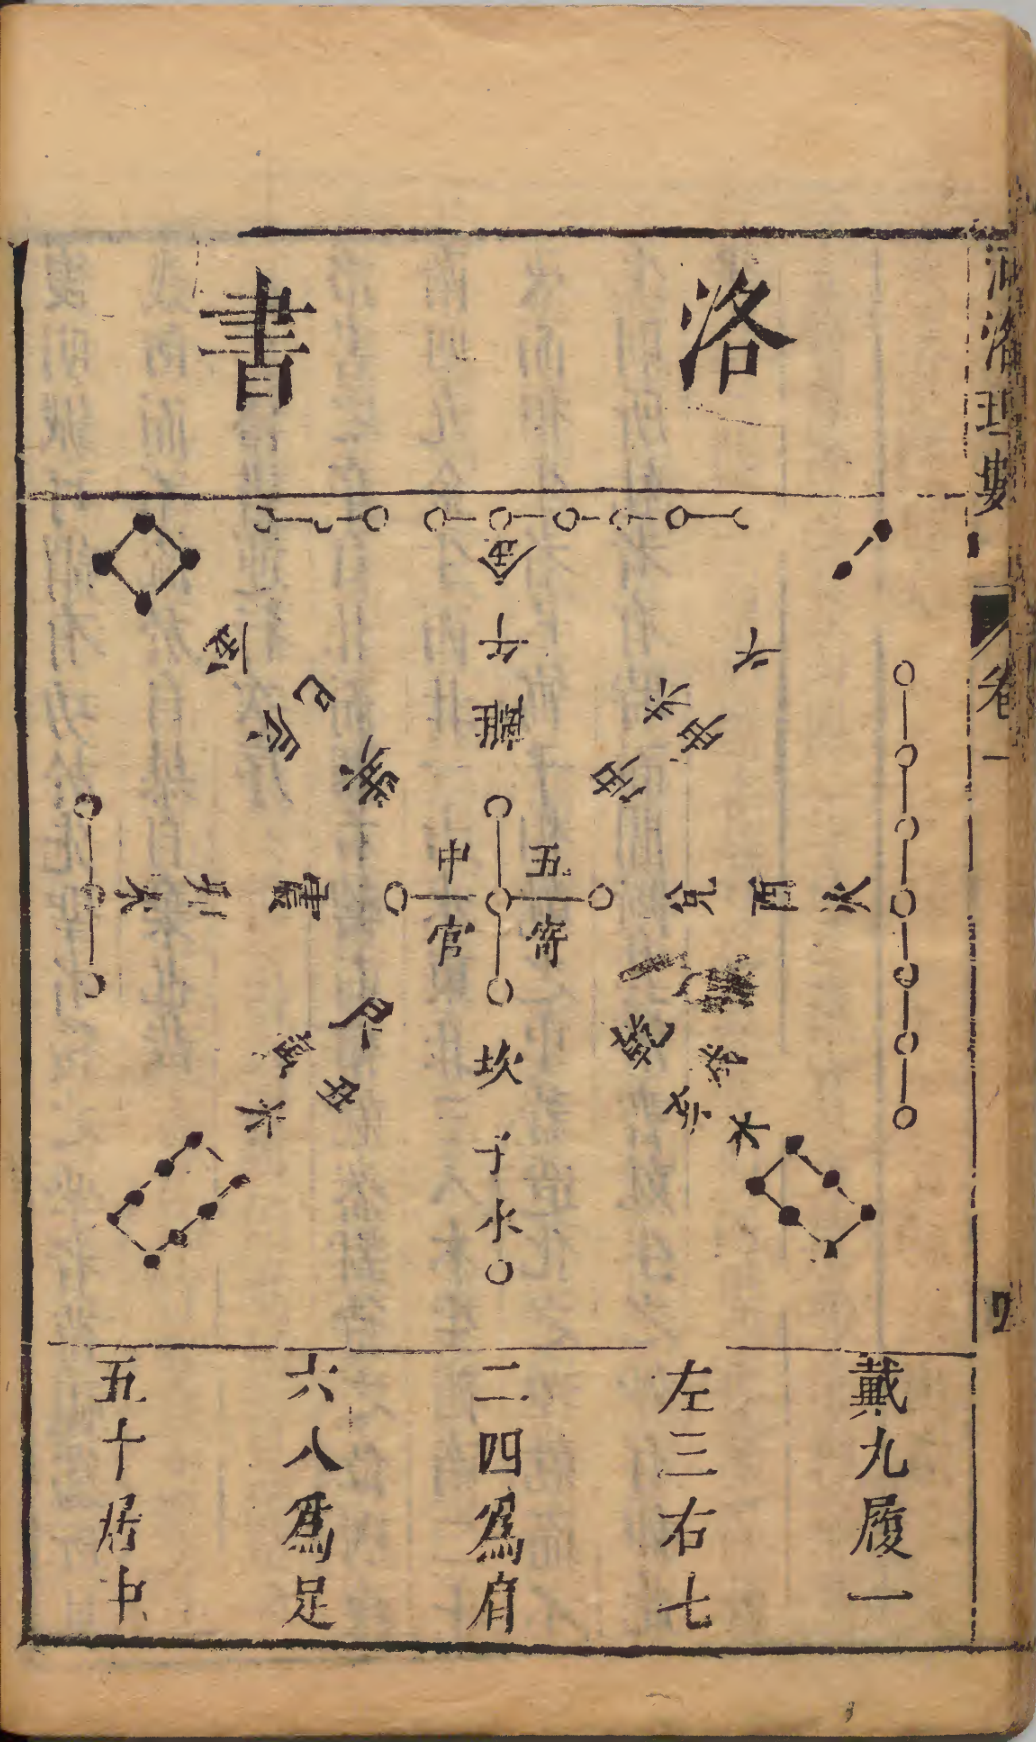 河洛理數
卷一
洛書
金午離
坤申未
巽辰巳
震卯木
兌酉火
五寄
中官
艮寅丑木
坎子水
戴九履一
左三右七
二四爲肩
六八爲足
五十居中